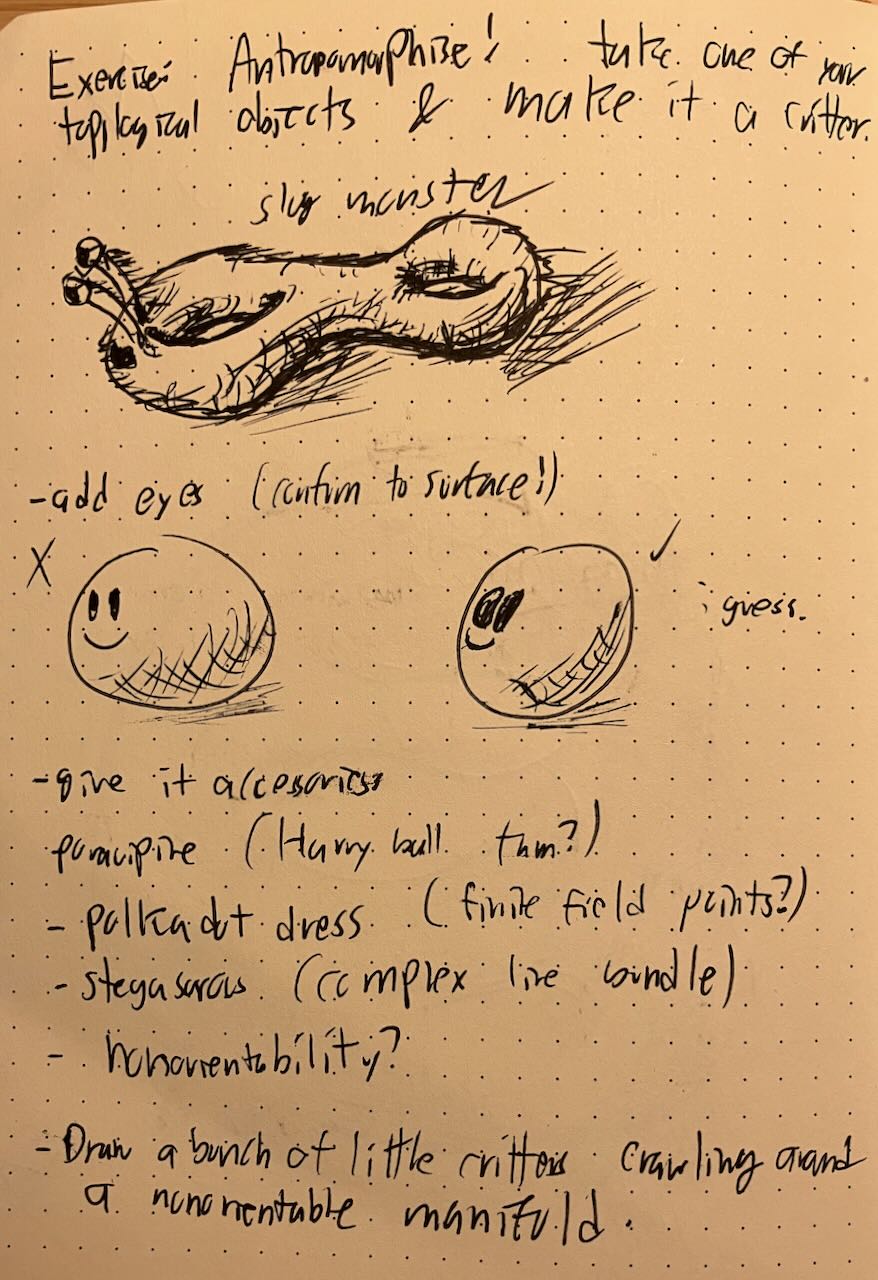 Exercise: Antropomorphise! take one of your
topological objects & make it a critter.
slug monster
- add eyes (confirm to surface!)
X
✓
i guess.
- give it accesories
porcupine (Hairy ball thm?)
- polkadot dress (finite field points?)
- stegasaraus (complex line bundle)
- nonorientability?
- Draw a bunch of little critters crawling around
a nonorientable manifold.